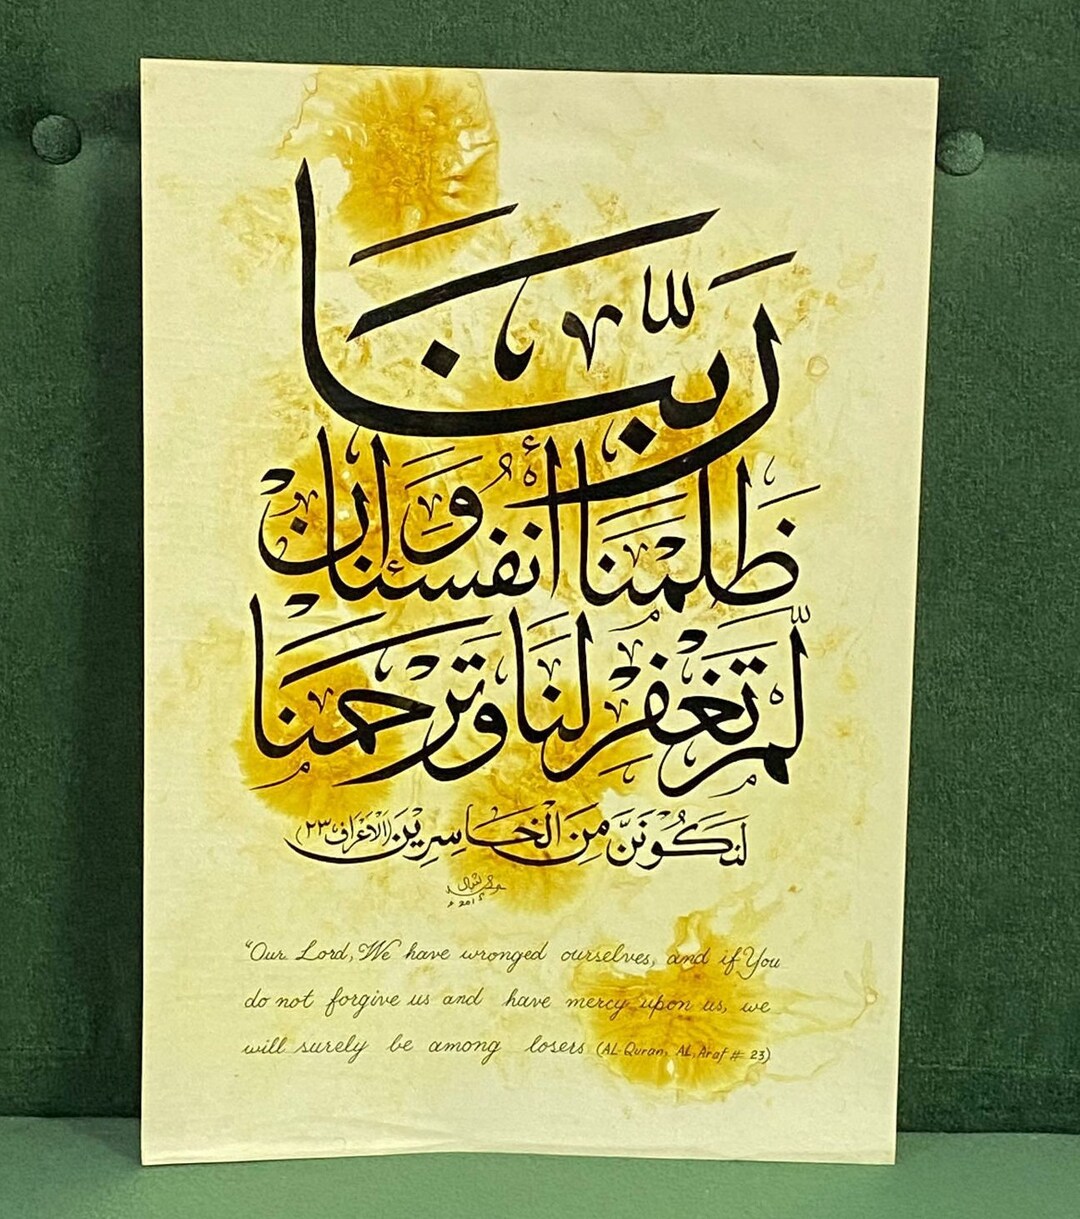 رَبَّنَا
ظَلَمْنَا أَنْفُسَنَا وَإِنْ
لَّمْ تَغْفِرْ لَنَا وَتَرْحَمْنَا
لَنَكُوْنَنَّ مِنَ الْخَاسِرِيْنَ (الْاَعْرَاف ٢٣)
2015ء
"Our Lord, We have wronged ourselves, and if You
do not forgive us and have mercy upon us, we
will surely be among losers (AL-Quran, AL, Araf # 23)